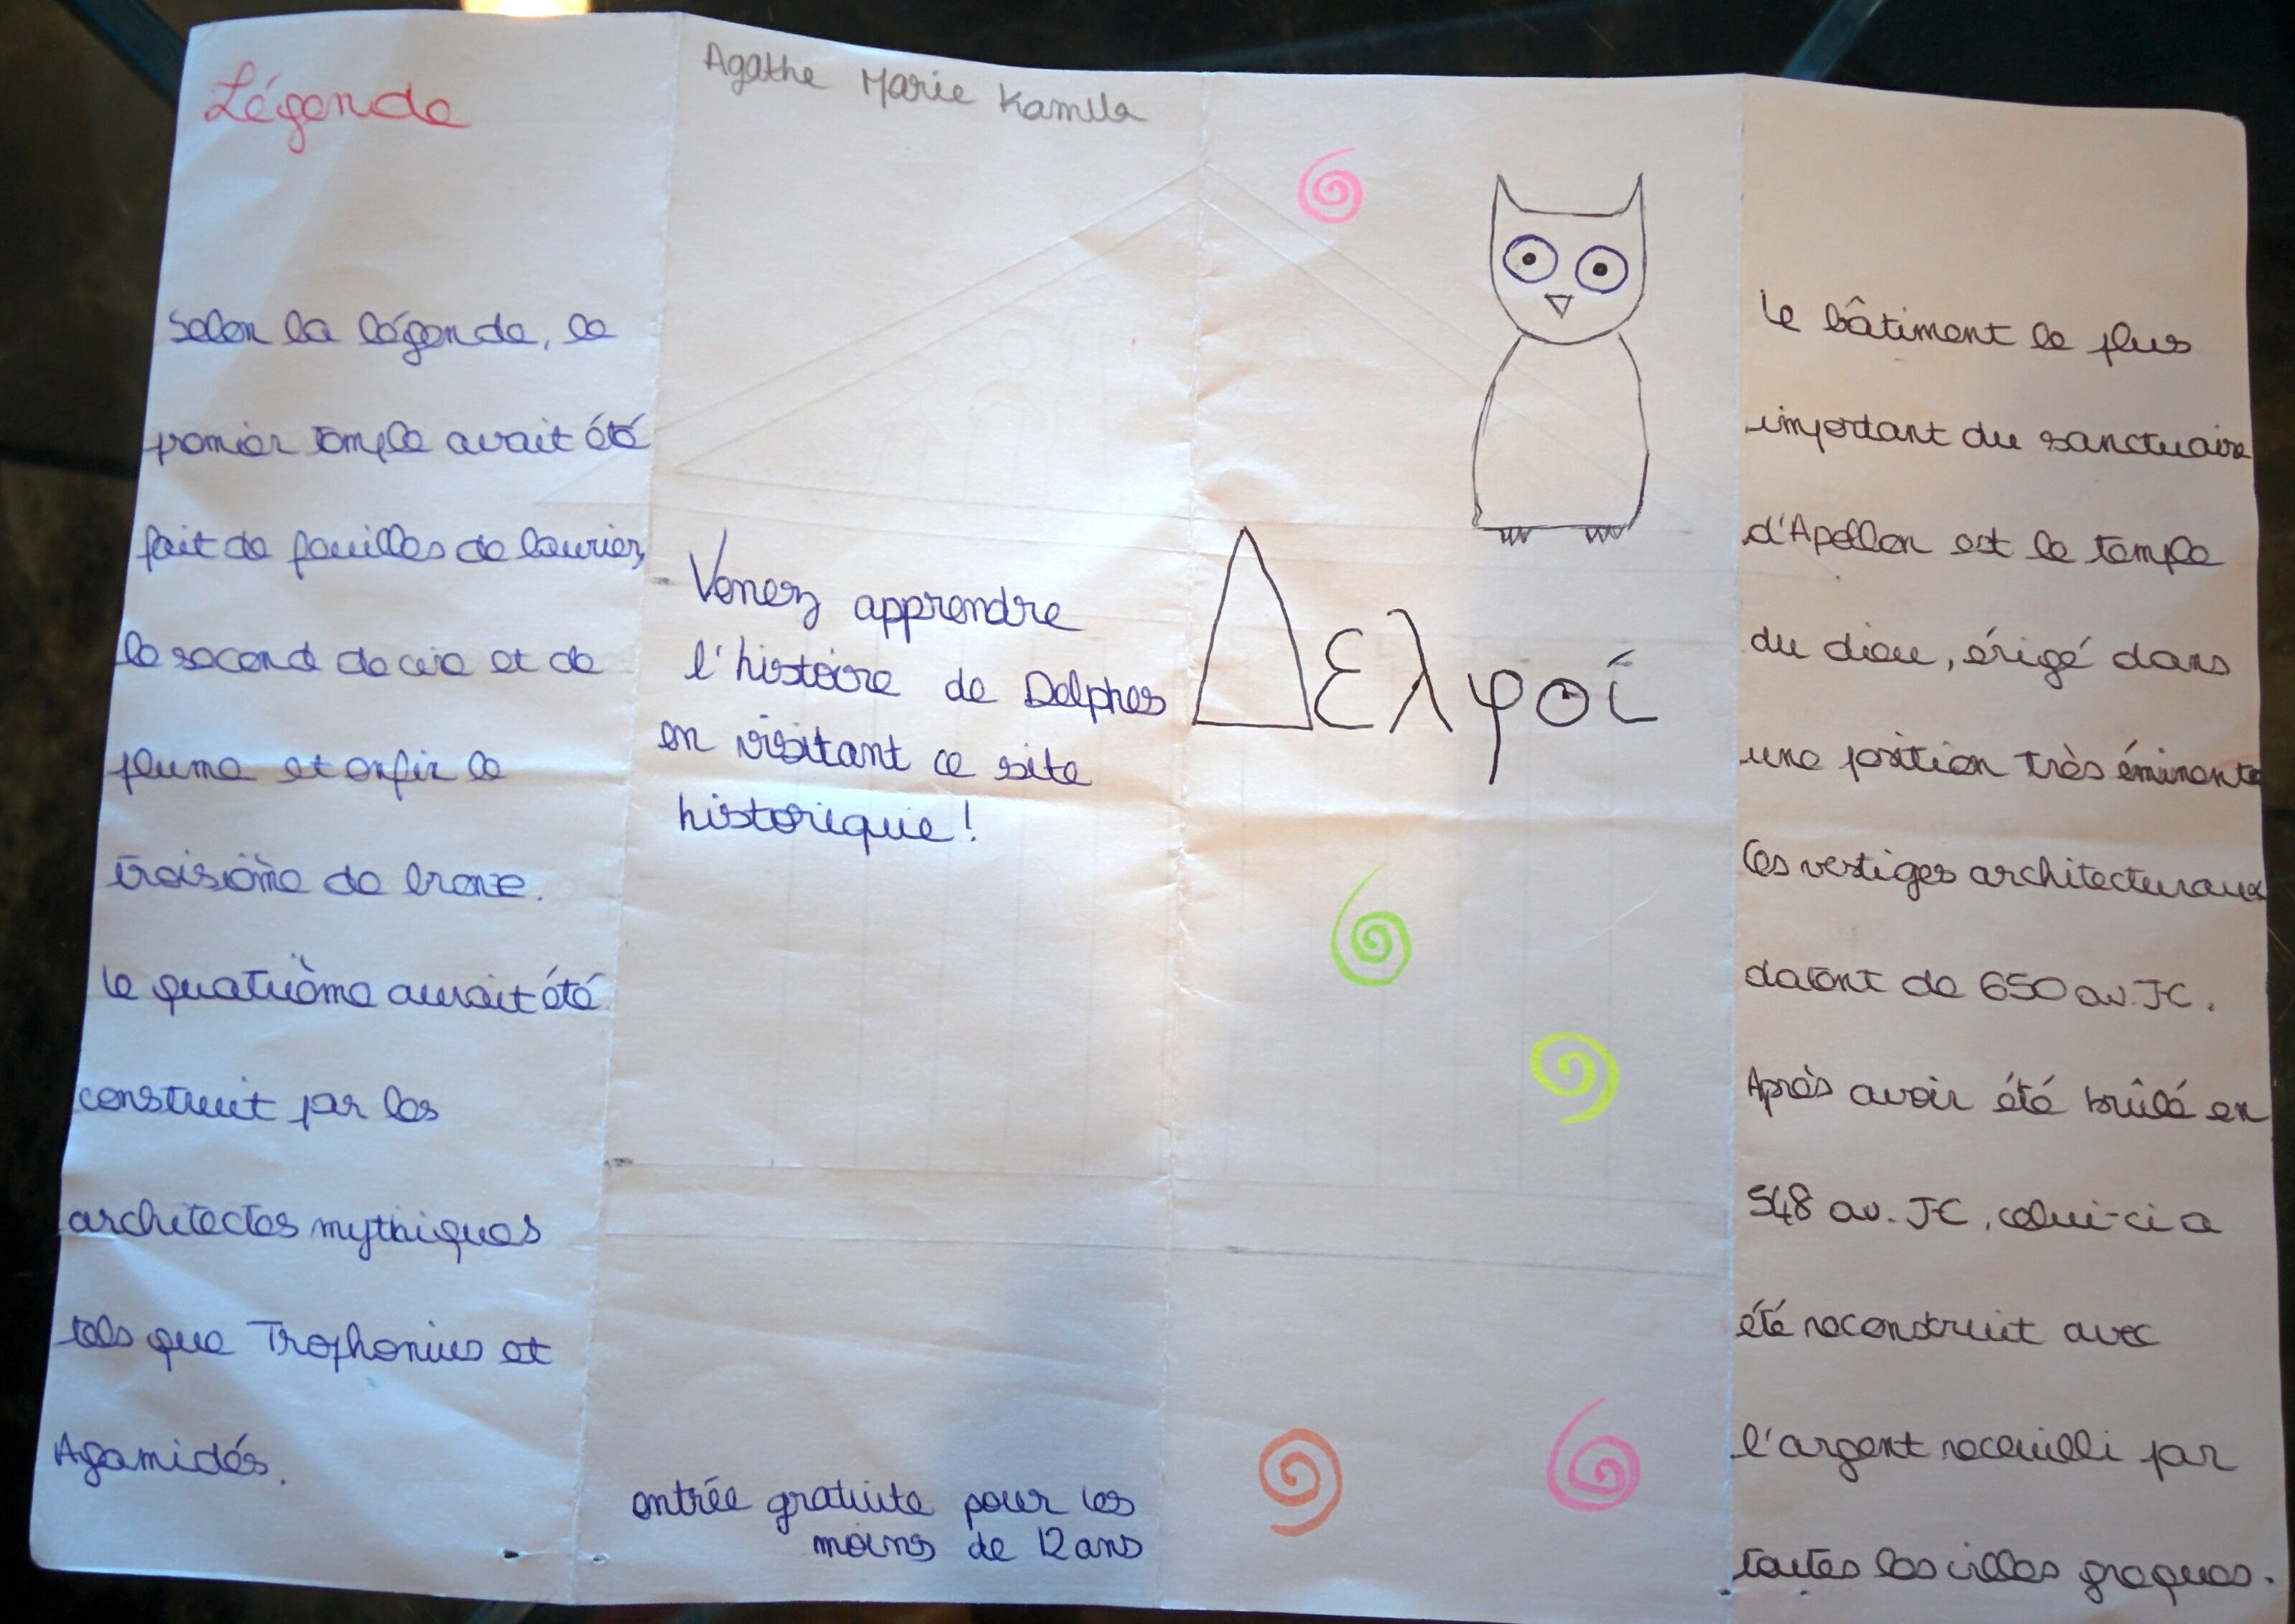 Légende
Selon la légende, le
premier temple avait été
fait de feuilles de laurier,
le second de cire et de
plume et enfin le
troisième de bronze.
Le quatrième aurait été
construit par les
architectes mythiques
tels que Trophonius et
Agamidés.
Agathe Marie Kamila
Venez apprendre
l'histoire de Delphes
en visitant ce site
historique!
entrée gratuite pour les
moins de 12 ans
Δελφοί
Le bâtiment le plus
important du sanctuaire
d'Apollon est le temple
du dieu, érigé dans
une position très éminente
Ces vestiges architecturaux
datent de 650 av. J-C.
Après avoir été brûlé en
548 av. J-C, celui-ci a
été reconstruit avec
l'argent recueilli par
toutes les villes grecques.